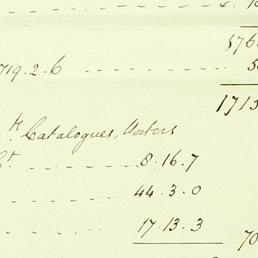 576
719.2.6
1713
Catalogues, Porters
8.16.7
44.3.0
17.13.3
70